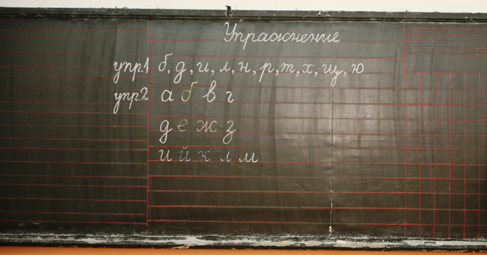 Упражнение
упр1 б, д, и, л, н, р, т, х, щ, ю
упр2 а б в г
д е ж з
и й к л м